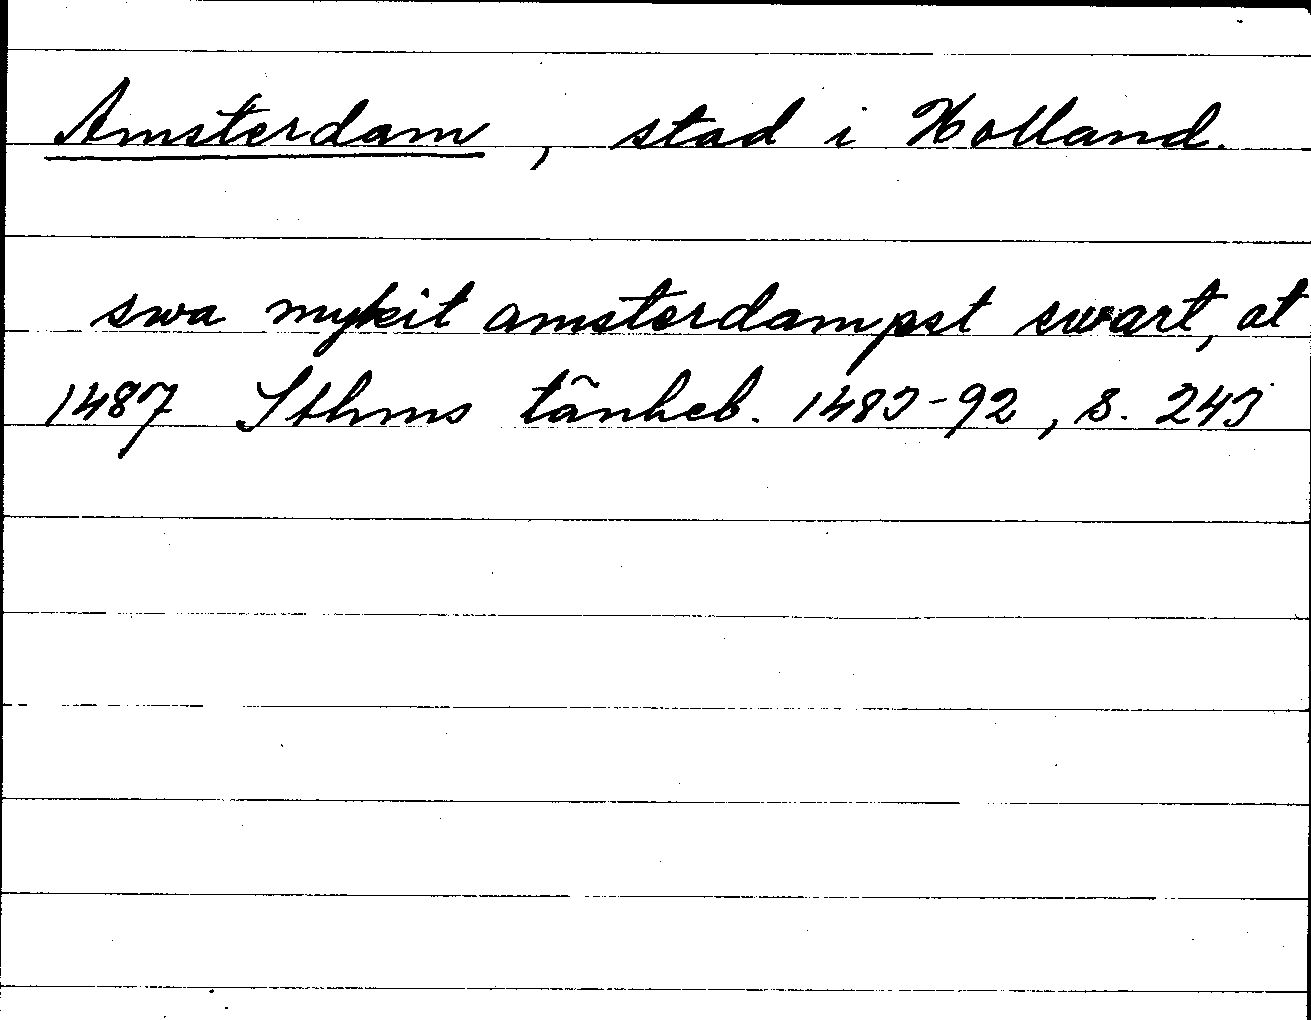 Amsterdam, stad i Holland.
swa mykit amsterdampst swart, at
1487 Sthms tänkeb. 1483-92, s. 243